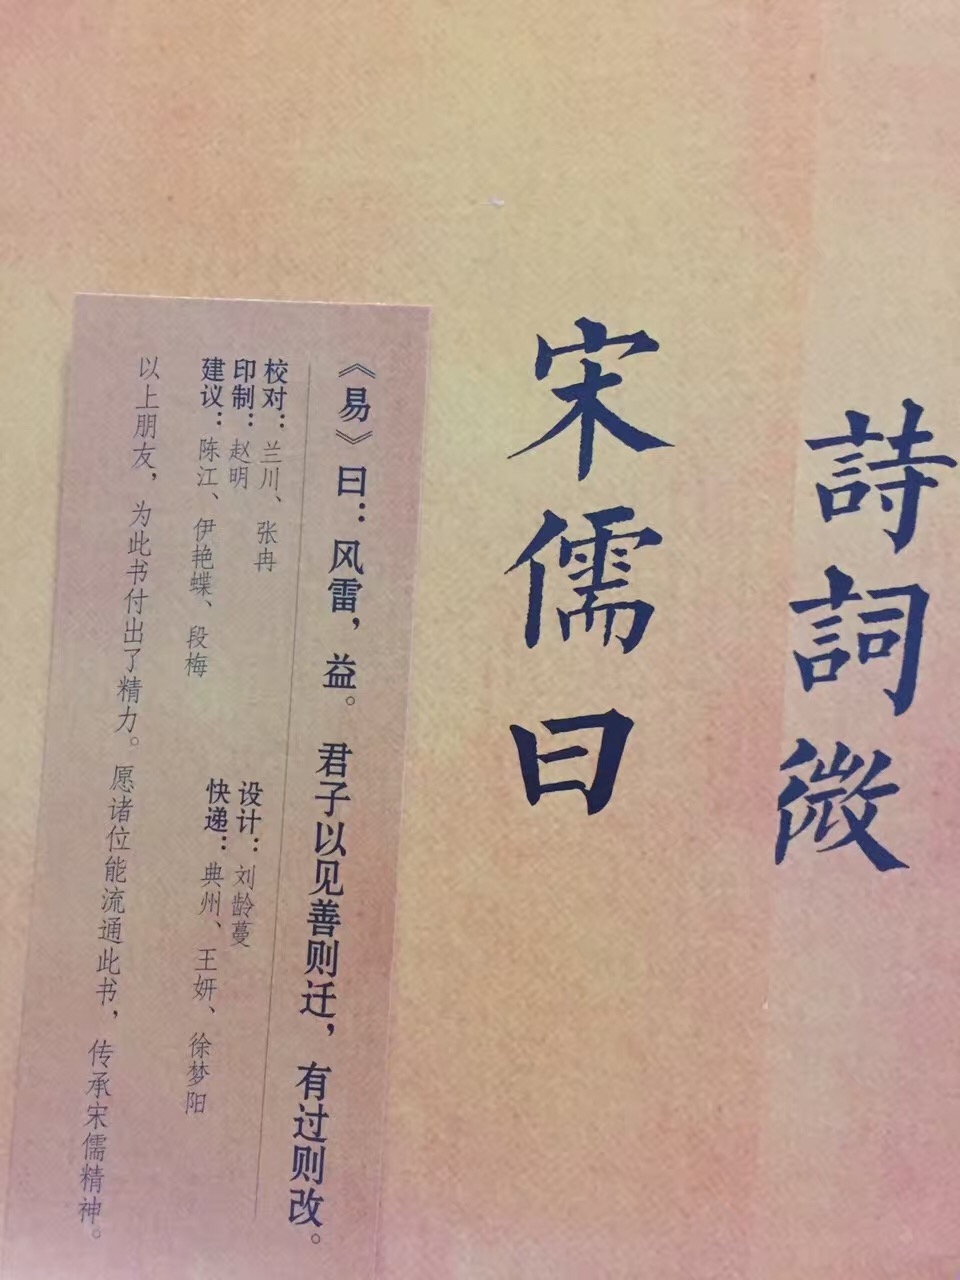 詩詞微
宋儒曰
《易》曰：风雷，益。君子以见善则迁，有过则改。
校对：兰川、张冉
印制：赵明
建议：陈江、伊艳蝶、段梅
设计：刘龄蔓
快递：典州、王妍、徐梦阳
以上朋友，为此书付出了精力。愿诸位能流通此书，传承宋儒精神。